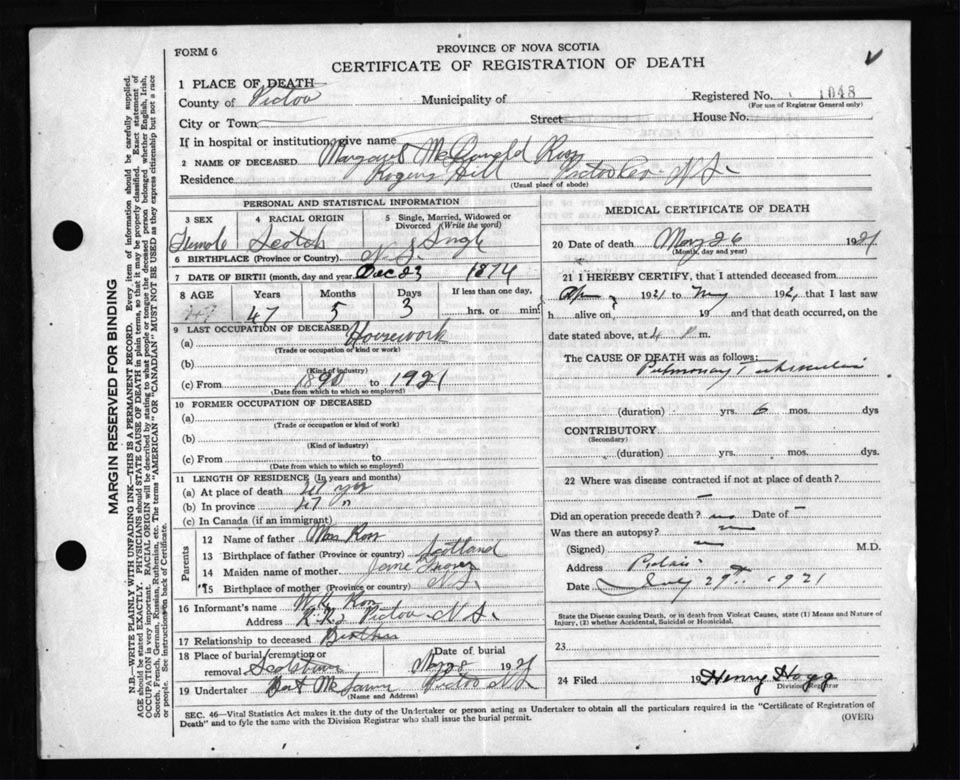 FORM 6
PROVINCE OF NOVA SCOTIA
CERTIFICATE OF REGISTRATION OF DEATH
1 PLACE OF DEATH
County of Pictou Municipality of Registered No. 1048
(For use of Registrar General only)
City or Town Street House No.
If in hospital or institution, give name
2 NAME OF DECEASED Margaret McDonald Ross
Residence Rogers Hill Pictou Co N.S.
(Usual place of abode)
PERSONAL AND STATISTICAL INFORMATION
3 SEX 4 RACIAL ORIGIN 5 Single, Married, Widowed or Divorced (Write the word)
Female Scotch Single
6 BIRTHPLACE (Province or Country) N.S.
7 DATE OF BIRTH (month, day and year Dec 23 1874
8 AGE Years Months Days If less than one day,
47 5 3 hrs. or min.
9 LAST OCCUPATION OF DECEASED
(a) Housework
(Trade or occupation or kind or work)
(b)
(Kind of industry)
(c) From 1890 to 1921
(Date from which to which so employed)
10 FORMER OCCUPATION OF DECEASED
(a)
(Trade or occupation or kind of work)
(b)
(Kind of industry)
(c) From to
(Date from which to which so employed)
11 LENGTH OF RESIDENCE (In years and months)
(a) At place of death 47 yrs
(b) In province 47 "
(c) In Canada (if an immigrant)
Parents
12 Name of father Ross
13 Birthplace of father (Province or country) Scotland
14 Maiden name of mother Jane
15 Birthplace of mother (Province or country) N.S.
16 Informant's name Ross
Address Pictou N.S.
17 Relationship to deceased Brother
18 Place of burial, cremation or removal Scotsburn Date of burial 1921
19 Undertaker Pictou N.S.
(Name and Address)
MEDICAL CERTIFICATE OF DEATH
20 Date of death May 26 1921
(Month, day and year)
21 I HEREBY CERTIFY, that I attended deceased from
1921 to May 1921, that I last saw
h alive on 19 and that death occurred, on
date stated above, at m.
The CAUSE OF DEATH was as follows:
Pulmonary Tuberculosis
(duration) yrs. 6 mos. dys
CONTRIBUTORY
(Secondary)
(duration) yrs. mos. dys.
22 Where was disease contracted if not at place of death?
Did an operation precede death? no Date of
Was there an autopsy?
(Signed) M.D.
Address
Date July 29th 1921
State the Disease causing Death, or in death from Violent Causes, state (1) Means and Nature of
Injury, (2) whether Accidental, Suicidal or Homicidal.
23
24 Filed 19 Henry Hogg
Division Registrar
SEC. 46—Vital Statistics Act makes it the duty of the Undertaker or person acting as Undertaker to obtain all the particulars required in the "Certificate of Registration of
Death" and to fyle the same with the Division Registrar who shall issue the burial permit. (OVER)
MARGIN RESERVED FOR BINDING
N.B.—WRITE PLAINLY WITH UNFADING INK—THIS IS A PERMANENT RECORD. Every item of information should be carefully supplied.
AGE should be stated EXACTLY. PHYSICIANS should STATE CAUSE OF DEATH in plain terms, so that it may be properly classified. Exact statement of
OCCUPATION is very important. RACIAL ORIGIN will be described by stating to what people or tongue the deceased person belonged whether English, Irish,
Scotch, French, German, Russian, Ruthenian, etc. The terms "AMERICAN" OR "CANADIAN" MUST NOT BE USED as they express citizenship but not a race
or people. See instructions on back of Certificate.